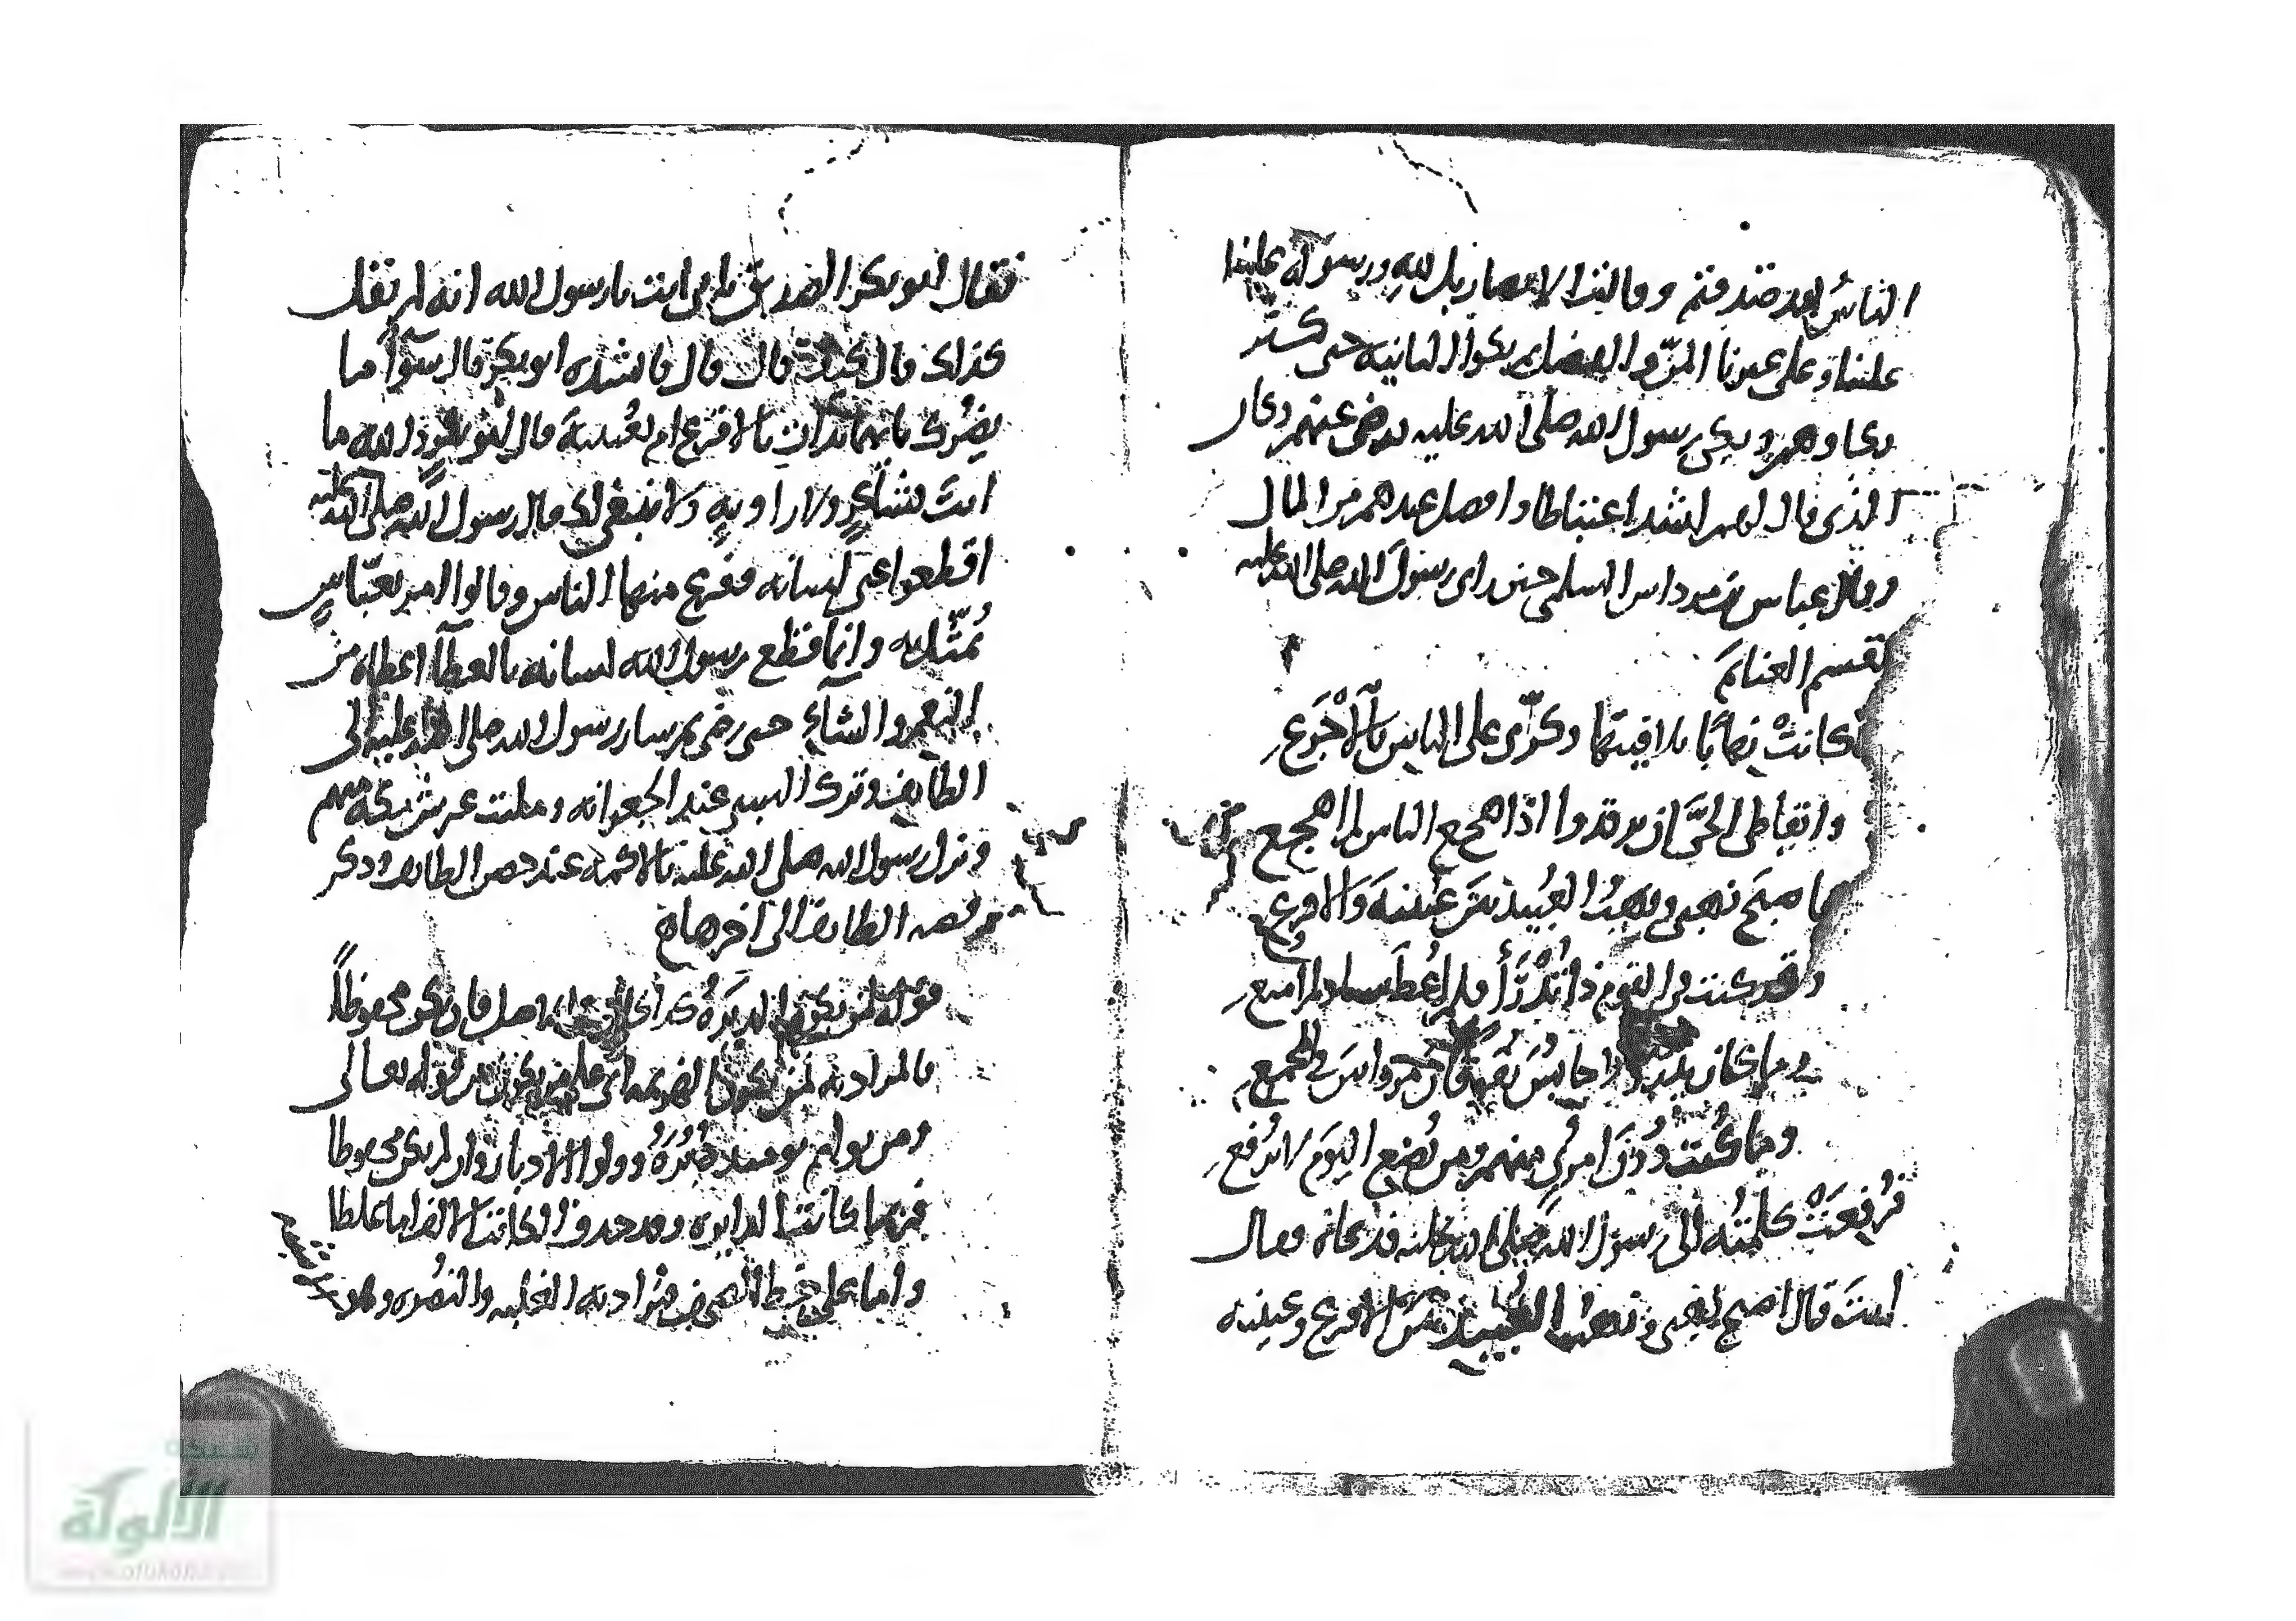 الناس بعد صدقتم وقالت الانصار بل لله ورسوله علينا
علينا وعلى غيرنا المن والفضل بكوا الثانية حتى كثر
بكاوهم وبكى رسول الله صلى الله عليه فرضى عنهم وكان
الذى قال لهم اشد اغتباطا وافضل عندهم من المال
وقال عباس بن مرداس السلمى حين راى رسول الله صلى الله عليه
يقسم الغنايم
كانت نهابا تلافيتها وكرى على الناس بالاجرع
وايقاظى الحى ان يرقدوا اذا هجع الناس لم اهجع
فاصبح نهبى ونهب العبيد بين عيينة والاقرع
وقد كنت فى القوم ذا تدرأ فلم اعط شيا ولم امنع
وما كان بدر ولا حابس يفوقان مرداس فى المجمع
وما كنت دون امرئ منهم ومن تضع اليوم لا يرفع
فرفعت كلمته الى رسول الله صلى الله عليه فدعاه وقال
انت قال اصبح نهبى ونهب العبيد بين الاقرع وعيينة
فقال ابو بكر الصديق بابى انت يا رسول الله انه لم يقل
كذلك قال كيف قال قال فانشده ابو بكر قال سوآ ما
يضرك بايهما بدات بالاقرع ام بعيينة قال ابو بكر والله ما
انت بشاعر ولا راوية ولا ينبغى لك قال رسول الله صلى الله عليه
اقطعوا عنى لسانه ففزع منها الناس وقالوا امر بعباس
يمثل به وانما قطع رسول الله لسانه بالعطآ اعطاه من
النعم والشاء حتى رضى ثم سار رسول الله صلى الله عليه الى
الطايف وترك السبى عند الجعرانه وملئت عرش مكة منهم
ونزل رسول الله صلى الله عليه بالاكمه عند حصن الطايف وذكر
قصه الطايف الى اخرها
قوله لمن تكون الدبرة كذا فى اصل فان يكن محفوظا
فالمراد به لمن تكون الهزيمة اى على من يكون من قوله تعالى
ومن يولهم يومئذ دبره وولوا الادبار وان لم يكن محفوظا
فربما كانت الدايره وقد حذف الكاتب الالف اما غلطا
واما على خط المصحف فيراد به الغلبه والنصره وهو